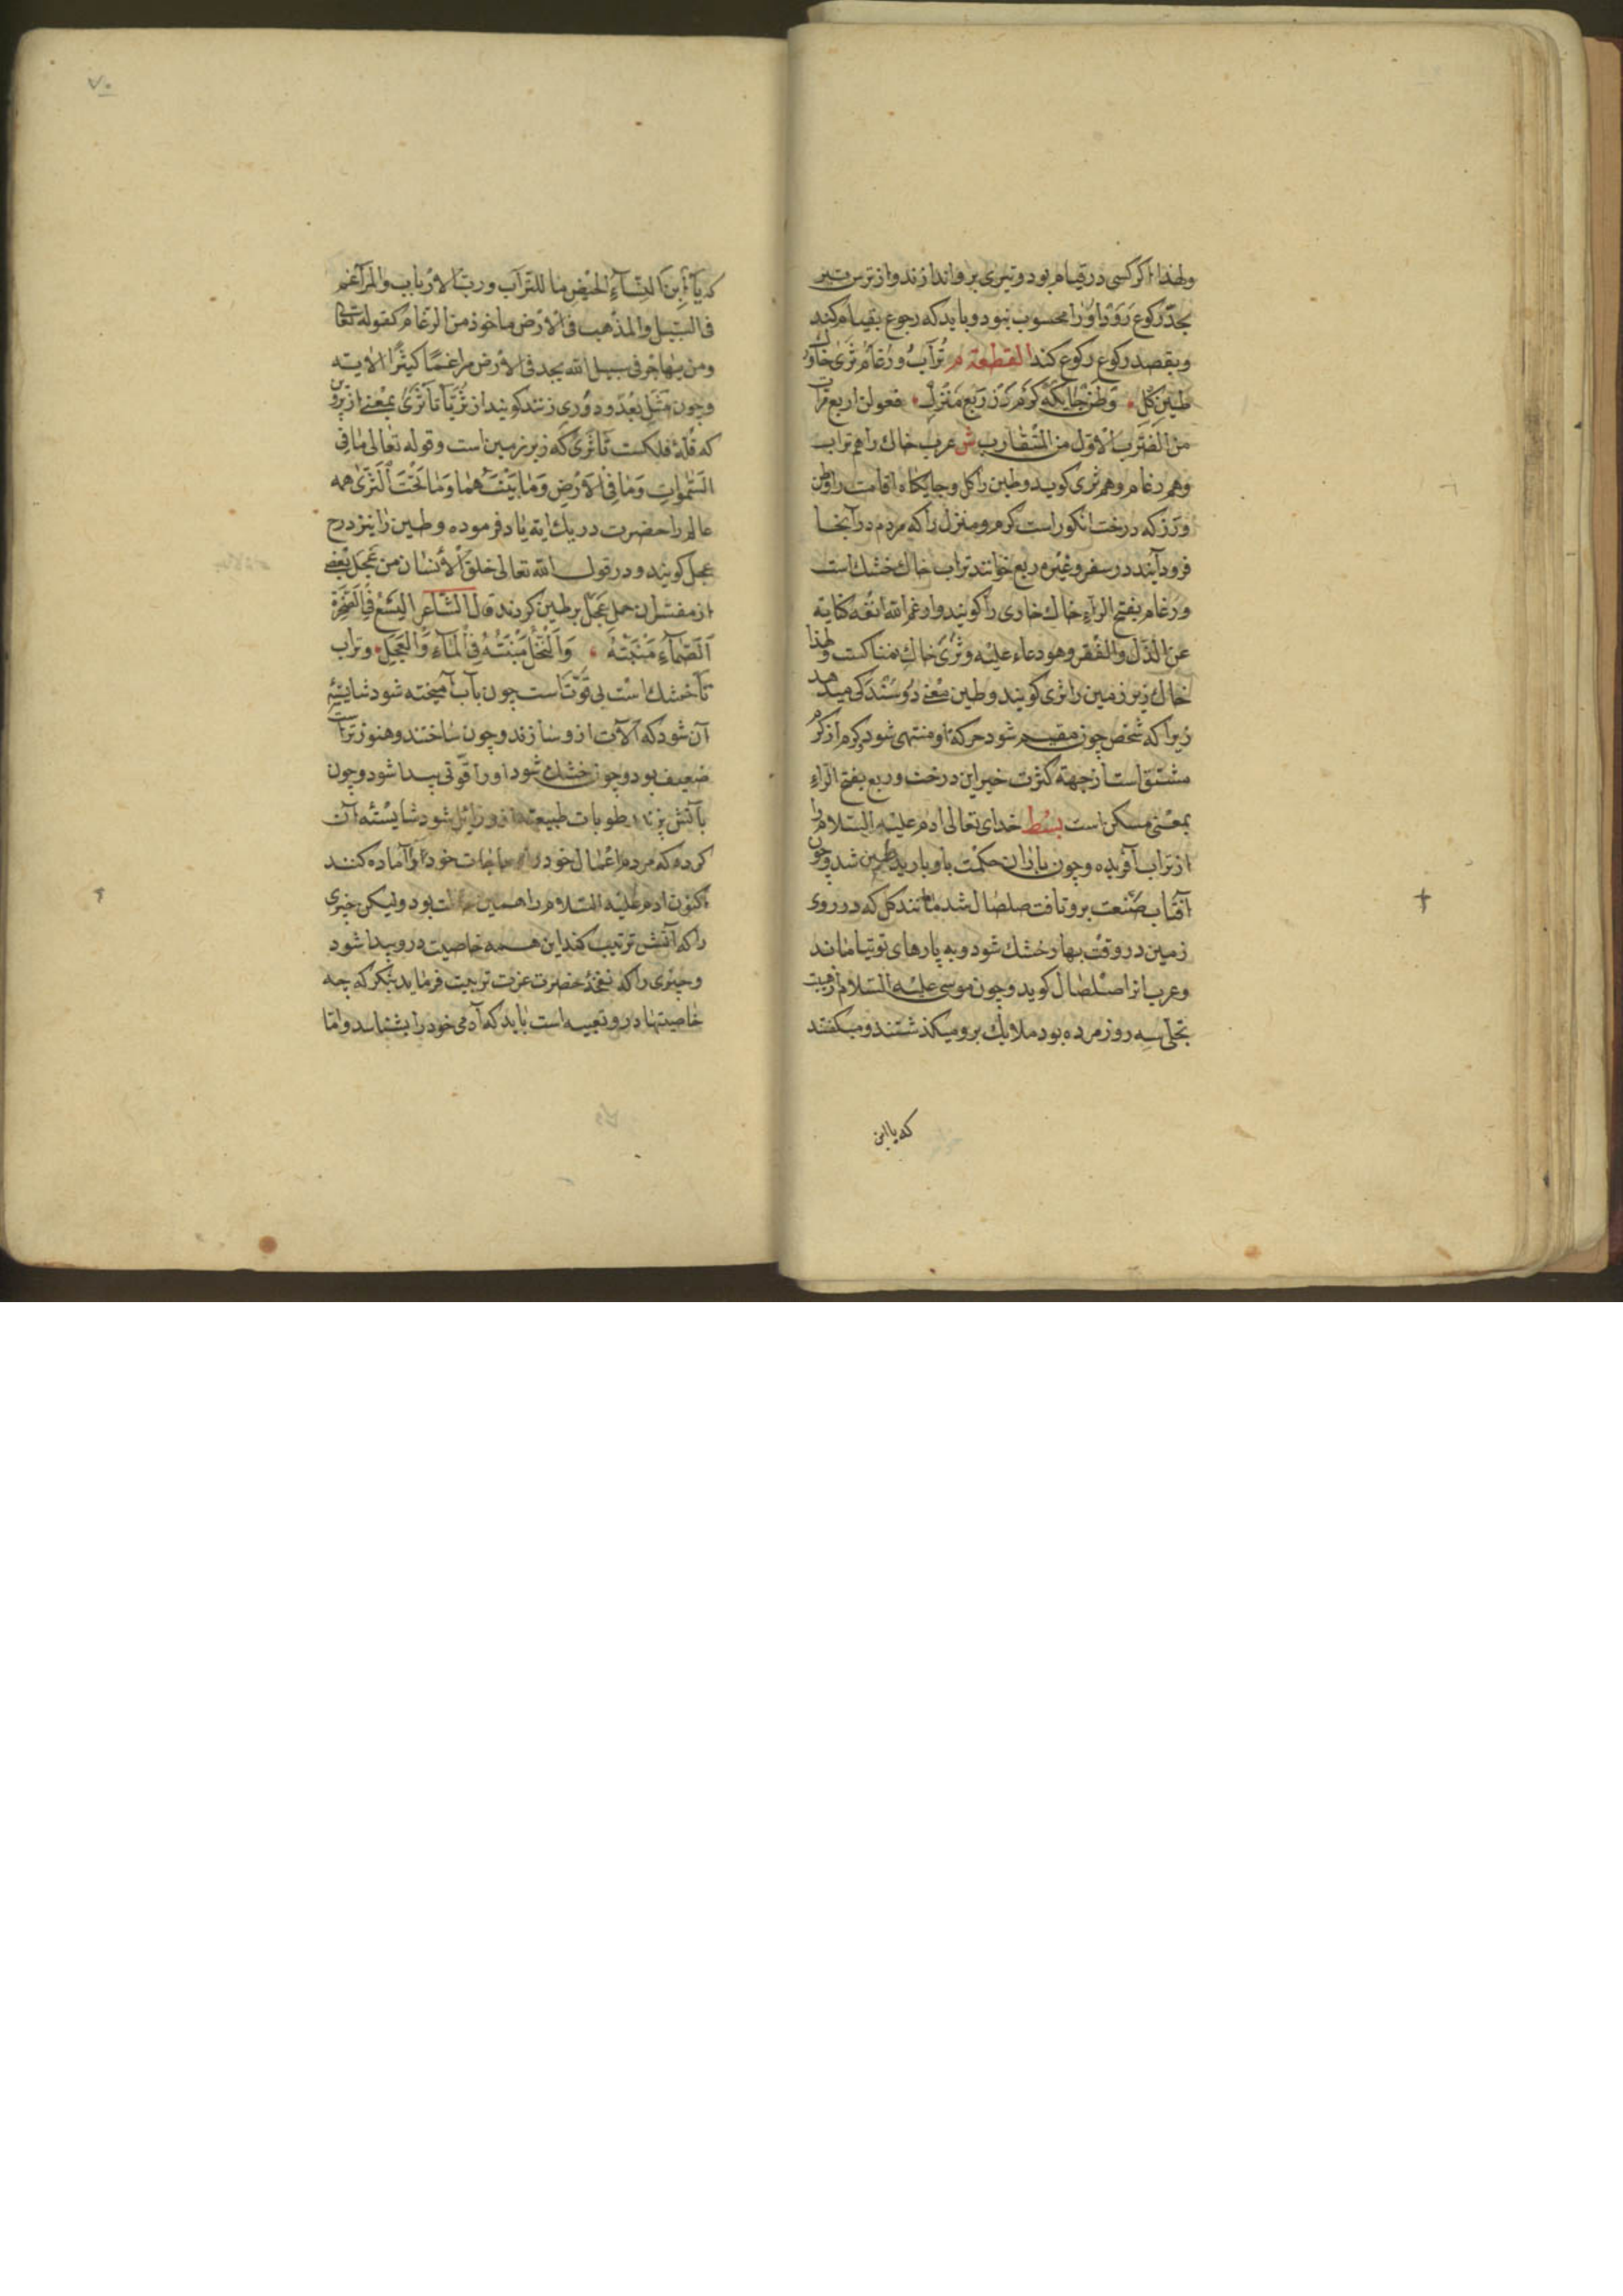 ولهذا اگر کسی در قیام بود و تیری برو اندازند و از ترس تیر
بحد رکوع رود او را محسوب نبود و باید که رجوع بقیام کند
و بقصد رکوع رکوع کند القطعة م تُرَابُ و رُغَام ثَرَیٰ خَاک و
طین گل وَطَن جَایگه کَرْم رَز رَبْع مَنْزِل فعولن اربع مرات
من الضرب الاول من المتقارب ش عرب خاک را هم تراب
و هم رغام و هم ثری کوید و طین را کل و جایکاه اقامت را وطن
و رز که درخت انکور است کرم و منزل را که مردم در آنجا
فرود آیند در سفر و غیره ربع خوانند تراب خاک خشک است
و رغام بفتح الراء خاک خاری را کویند و ارغم الله انفه کنایة
عن الذل والفقر و هو دعاء علیه و ثری خاک نمناکست و لهذا
خاک زیر زمین را ثری کویند و طین معنی دوسندکی میدهد
زیرا که شخص چون مقیم شود حرکة او منتهی شود کرم از کرم
مشتق است از جهة کثرت خیر این درخت و ربع بفتح الراء
بمعنی مسکن است بسط خدای تعالی ادم علیه السلام را
از تراب آفریده و چون باران حکمت باو بارید طین شد و چون
آفتاب صنعت برو تافت صلصال شد مانند کل که در روی
زمین در وقت بهار خشک شود و به پارهای توتیا ماند
و عرب انرا صلصال کوید و چون موسی علیه السلام از هیبت
تجلی سه روز مرده بود ملایک برو میکذشتند و میکفتند
که یا ابن
۷۰
که یَا ابْنَ النِّسَآءِ الحُیَّضِ ما للتراب و رب الارباب والمراغم
فی السبیل والمذهب فی الارض ماخوذ من الرغام کقوله تعالی
ومن یهاجر فی سبیل الله یجد فی الارض مراغما کثیرا الایة
و چون مثل بعد و دوری زنند کویند از ثریا تا ثری بمعنی از پروین
که قلۀ فلکست تا ثری که زیر زمین است و قوله تعالی ما فی
السموات وما فی الارض وما بینهما وما تحت الثری همه
عالم را حضرت در یک ایة یاد فرموده و طین را نیز در ح
عجل کویند و در قول الله تعالی خلق الانسان من عجل بعضی
از مفسران حمل عجل بر طین کردند قال الشاعر النبع فی الصخرة
الصماء منبته والنخل منبته فی الماء والعجل و تراب
تا خشک است بی قوتاست چون بآب آمیخته شود شایسته
آن شود که آلات ازو سازند و چون ساختند و هنوز تر است
ضعیف بود و چون خشک شود او را قوتی پیدا شود و چون
بآتش پزند رطوبات طبیعت ازو زائل شود شایستۀ آن
کردد که مردم اعمال خود را و حاجات خود را آماده کنند
اکنون ادم علیه السلام را همین حالت بود ولیکن چیزی
را که آتش ترتیب کند این همه خاصیت درو پیدا شود
و چیزی را که نفخۀ حضرت عزت تربیت فرماید بنکر که چه
خاصیتها درو تعبیه است باید که آدمی خود را بشناسد و اما